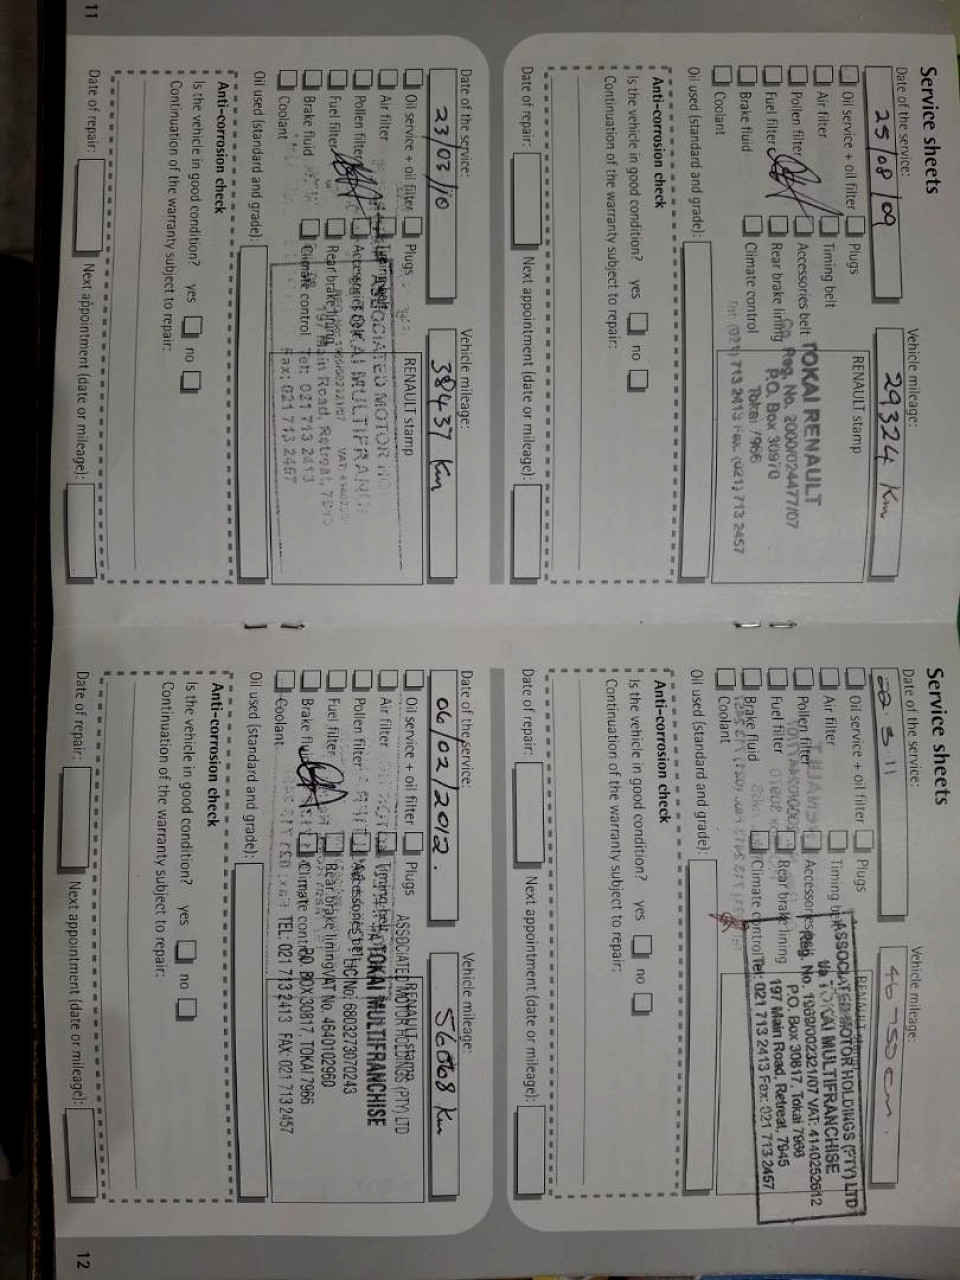 Service sheets
Date of the service:
25/08/09
Vehicle mileage:
29324 Km
Oil service + oil filter
Plugs
Air filter
Timing belt
Pollen filter
Accessories belt
Fuel filter
Rear brake lining
Brake fluid
Climate control
Coolant
RENAULT stamp
TOKAI RENAULT
Co. Reg. No. 2000/024477/07
P.O. Box 30970
Tokai 7966
Tel: (021) 713 2413 Fax: (021) 713 2457
Oil used (standard and grade):
Anti-corrosion check
Is the vehicle in good condition? yes no
Continuation of the warranty subject to repair:
Date of repair:
Next appointment (date or mileage):
Date of the service:
23/03/10
Vehicle mileage:
38437 Km
Oil service + oil filter
Plugs
Air filter
Timing belt
Pollen filter
Accessories belt
Fuel filter
Rear brake lining
Brake fluid
Climate control
Coolant
RENAULT stamp
ASSOCIATED MOTOR HO
TOKAI MULTIFRANC
197 Main Road, Retreat, 79
Tel: 021 713 2413
Fax: 021 713 2457
Oil used (standard and grade):
Anti-corrosion check
Is the vehicle in good condition? yes no
Continuation of the warranty subject to repair:
Date of repair:
Next appointment (date or mileage):
11
Service sheets
Date of the service:
22.3.11
Vehicle mileage:
46 750
Oil service + oil filter
Plugs
Air filter
Timing belt
Pollen filter
Accessories belt
Fuel filter
Rear brake lining
Brake fluid
Climate control
Coolant
RENAULT stamp
ASSOCIATED MOTOR HOLDINGS (PTY) LTD
t/a TOKAI MULTIFRANCHISE
Reg. No. 1969/002321/07 VAT: 4140252612
P.O. Box 30817, Tokai 7966
197 Main Road, Retreat, 7945
Tel: 021 713 2413 Fax: 021 713 2457
Oil used (standard and grade):
Anti-corrosion check
Is the vehicle in good condition? yes no
Continuation of the warranty subject to repair:
Date of repair:
Next appointment (date or mileage):
Date of the service:
06/02/2012.
Vehicle mileage:
Km
Oil service + oil filter
Plugs
Air filter
Timing belt
Pollen filter
Accessories belt
Fuel filter
Rear brake lining
Brake fluid
Climate control
Coolant
RENAULT stamp
ASSOCIATED MOTOR HOLDINGS (PTY) LTD
TOKAI MULTIFRANCHISE
LIC No: 6803273070243
VAT No. 4640102960
PO BOX 30817, TOKAI 7966
TEL: 021 713 2413 FAX: 021 713 2457
Oil used (standard and grade):
Anti-corrosion check
Is the vehicle in good condition? yes no
Continuation of the warranty subject to repair:
Date of repair:
Next appointment (date or mileage):
12